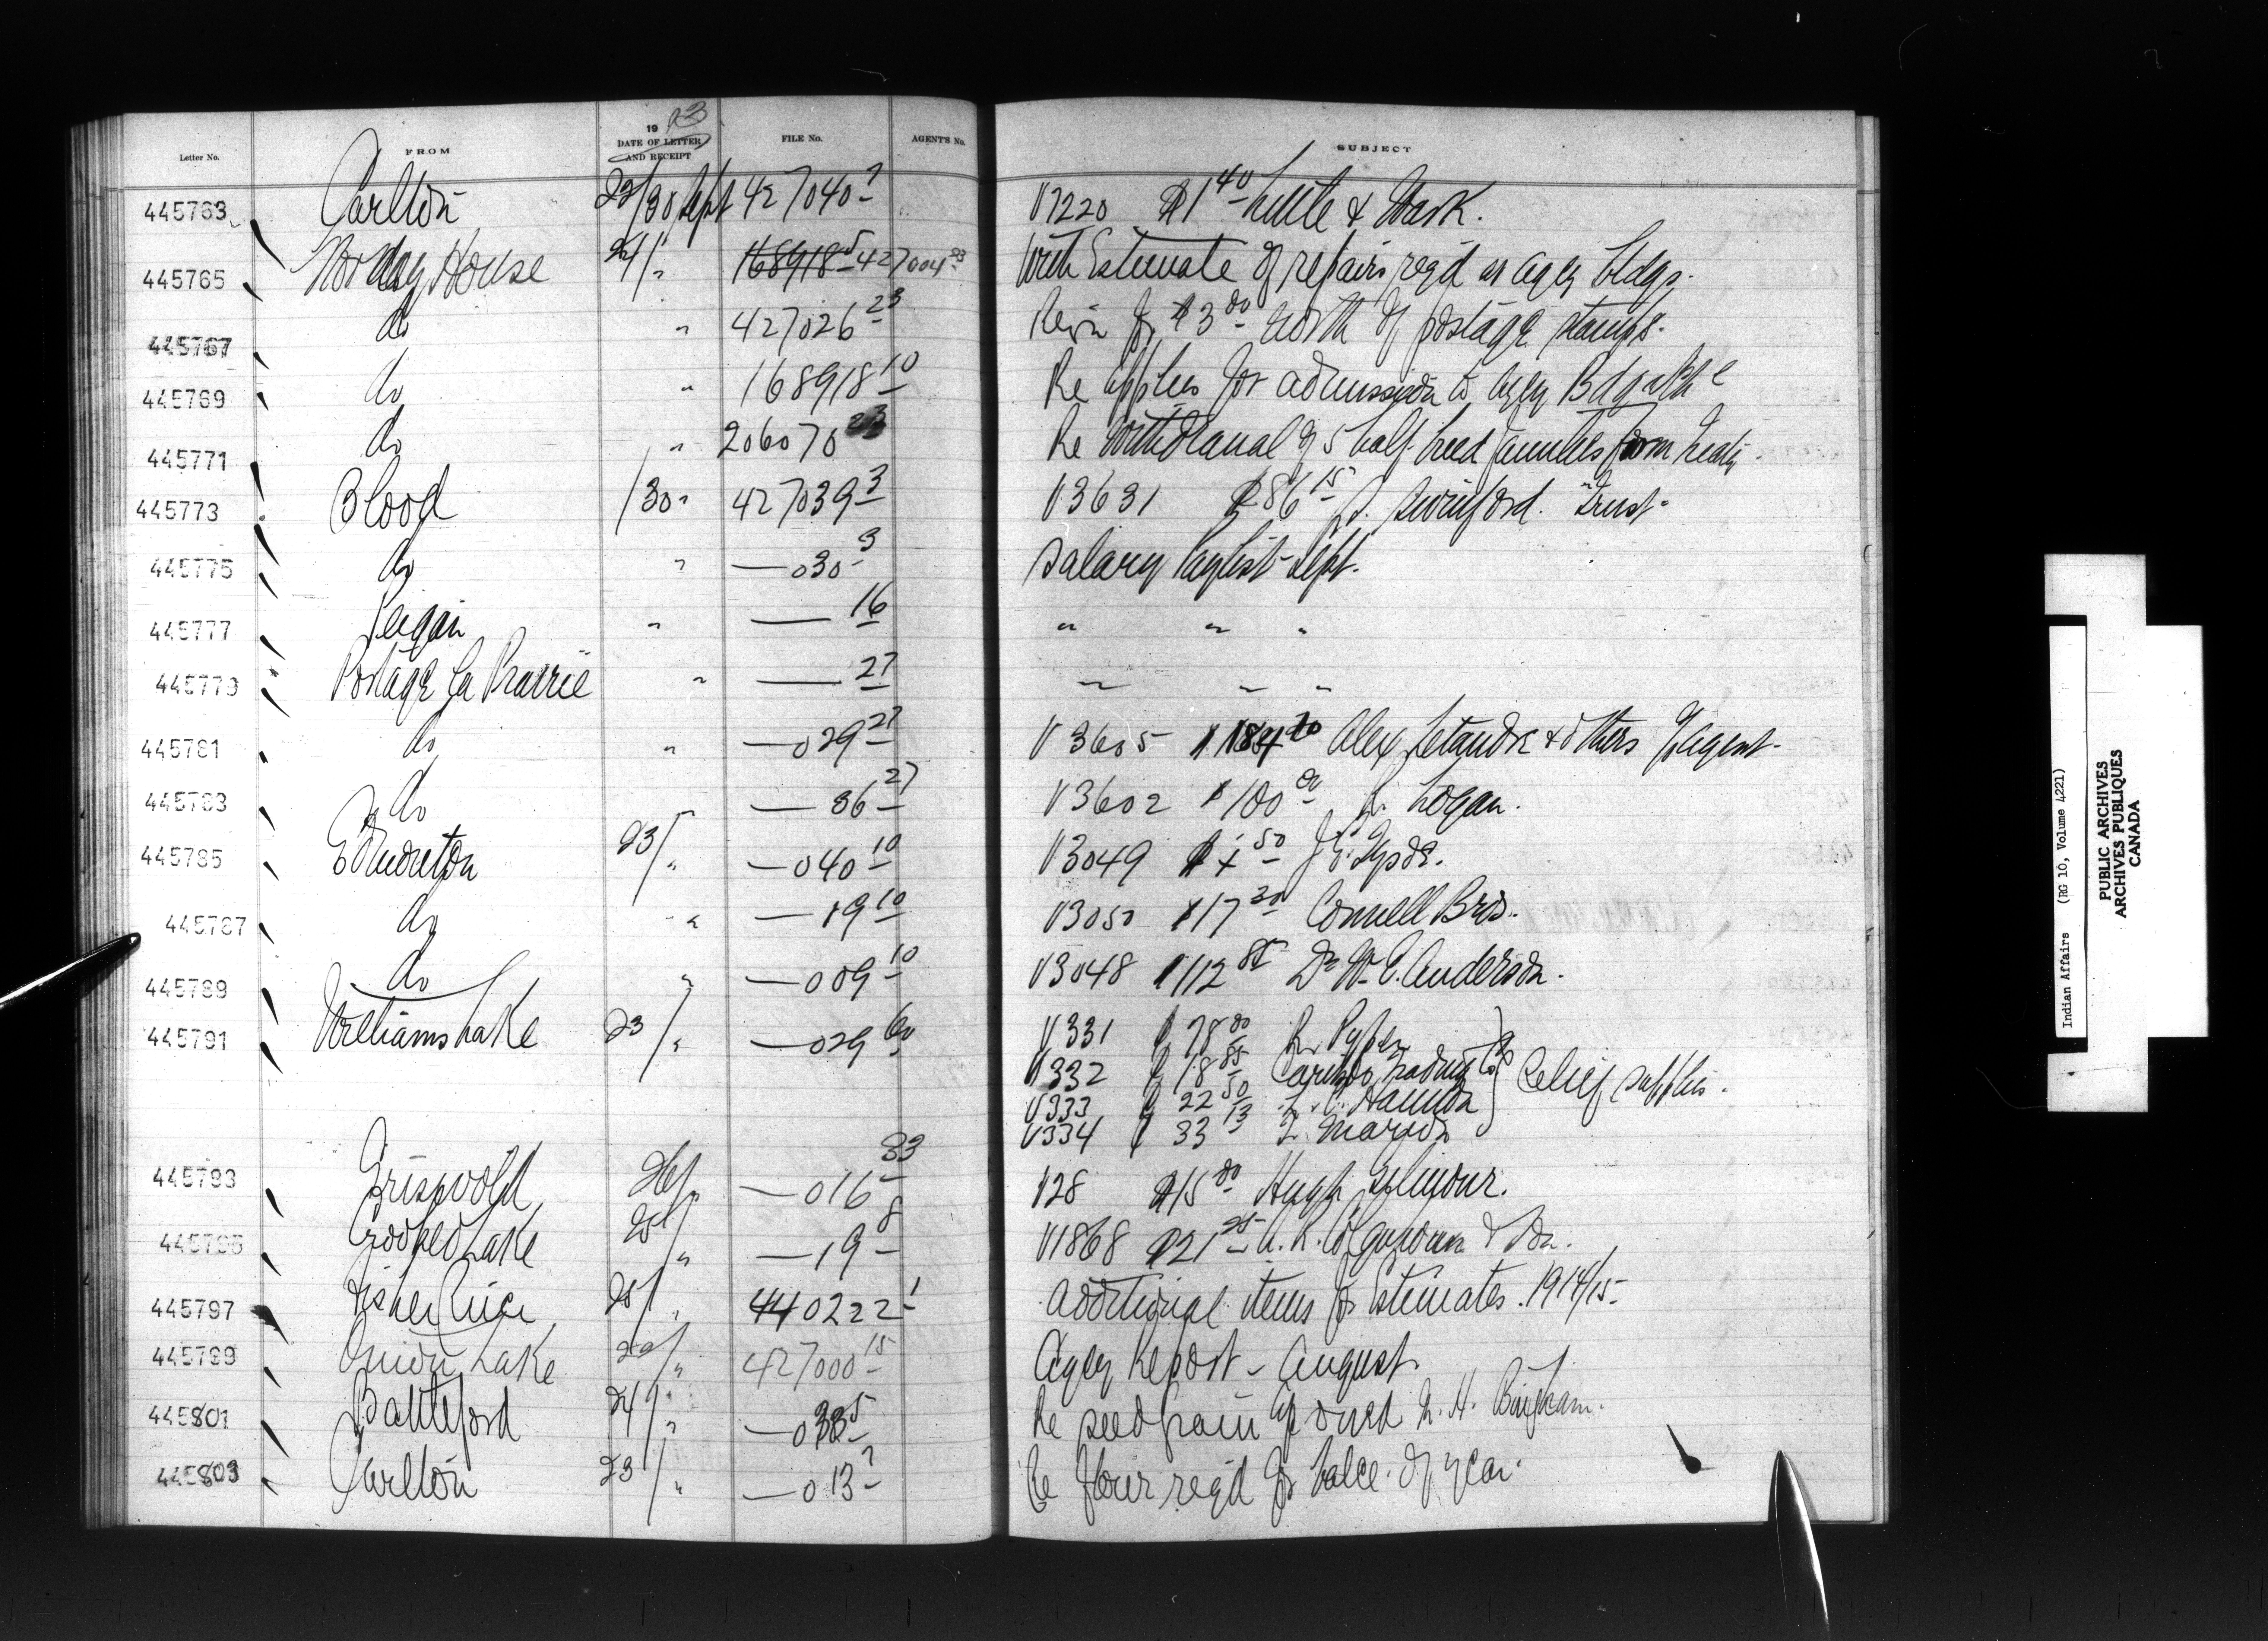 Letter No. FROM 19 23 DATE OF LETTER AND RECEIPT FILE No. AGENT'S No. SUBJECT
445763 Carlton 22/30 Sept 427040 7 V1220 $1 40 Little & Wark.
445765 Norway House 24/ " 168918 5 427004 23 With Estimate of repairs reqd at agcy bldgs.
445767 do " 427026 23 $3 00 worth of postage stamps.
445769 do " 168918 10 Re applics for admission to
445771 do " 206070 23 Re withdrawal of 5 half breed families from Treaty.
445773 Blood /30 " 427039 3 V3631 $86 15 Swinford. Trust.
445775 do " — 030 3 Salary Paylist Sept.
445777 Peigan " — 16 " " "
445779 Portage La Prairie " — 27 " " "
445781 do " — 029 27 V3605 Alex & others Agent.
445783 do " — 36 27 V3602 $100 00 Logan.
445785 Edmonton 23/ " — 040 10 V3049 50
445787 do " — 19 10 V3050 $17 30 Connell Bros.
445789 do " — 009 10 V3048 $112 85 Dr W. E. Anderson.
445791 Williams Lake 23/ " — 029 60 V331 $78 00
V332 $18 85 Cariboo Trading Co
V333 $22 50 Relief supplies.
V334 $33 13
445793 Griswold 26/ " — 016 33 V28 $15 00 Hugh
445795 Crooked Lake 25/ " — 19 8 V1868 $21 25 & Son.
445797 Fisher River 25/ " 440222 1 Additional items for Estimates. 1914/15
445799 Onion Lake 22/ " 427000 15 Agcy Report – August.
445801 Battleford 24/ " — 033 5 Re seed grain H. Bingham.
445803 Carlton 23/ " — 013 7 Re flour reqd for balce. of year.
Indian Affairs (RG 10, Volume 4221)
PUBLIC ARCHIVES
ARCHIVES PUBLIQUES
CANADA